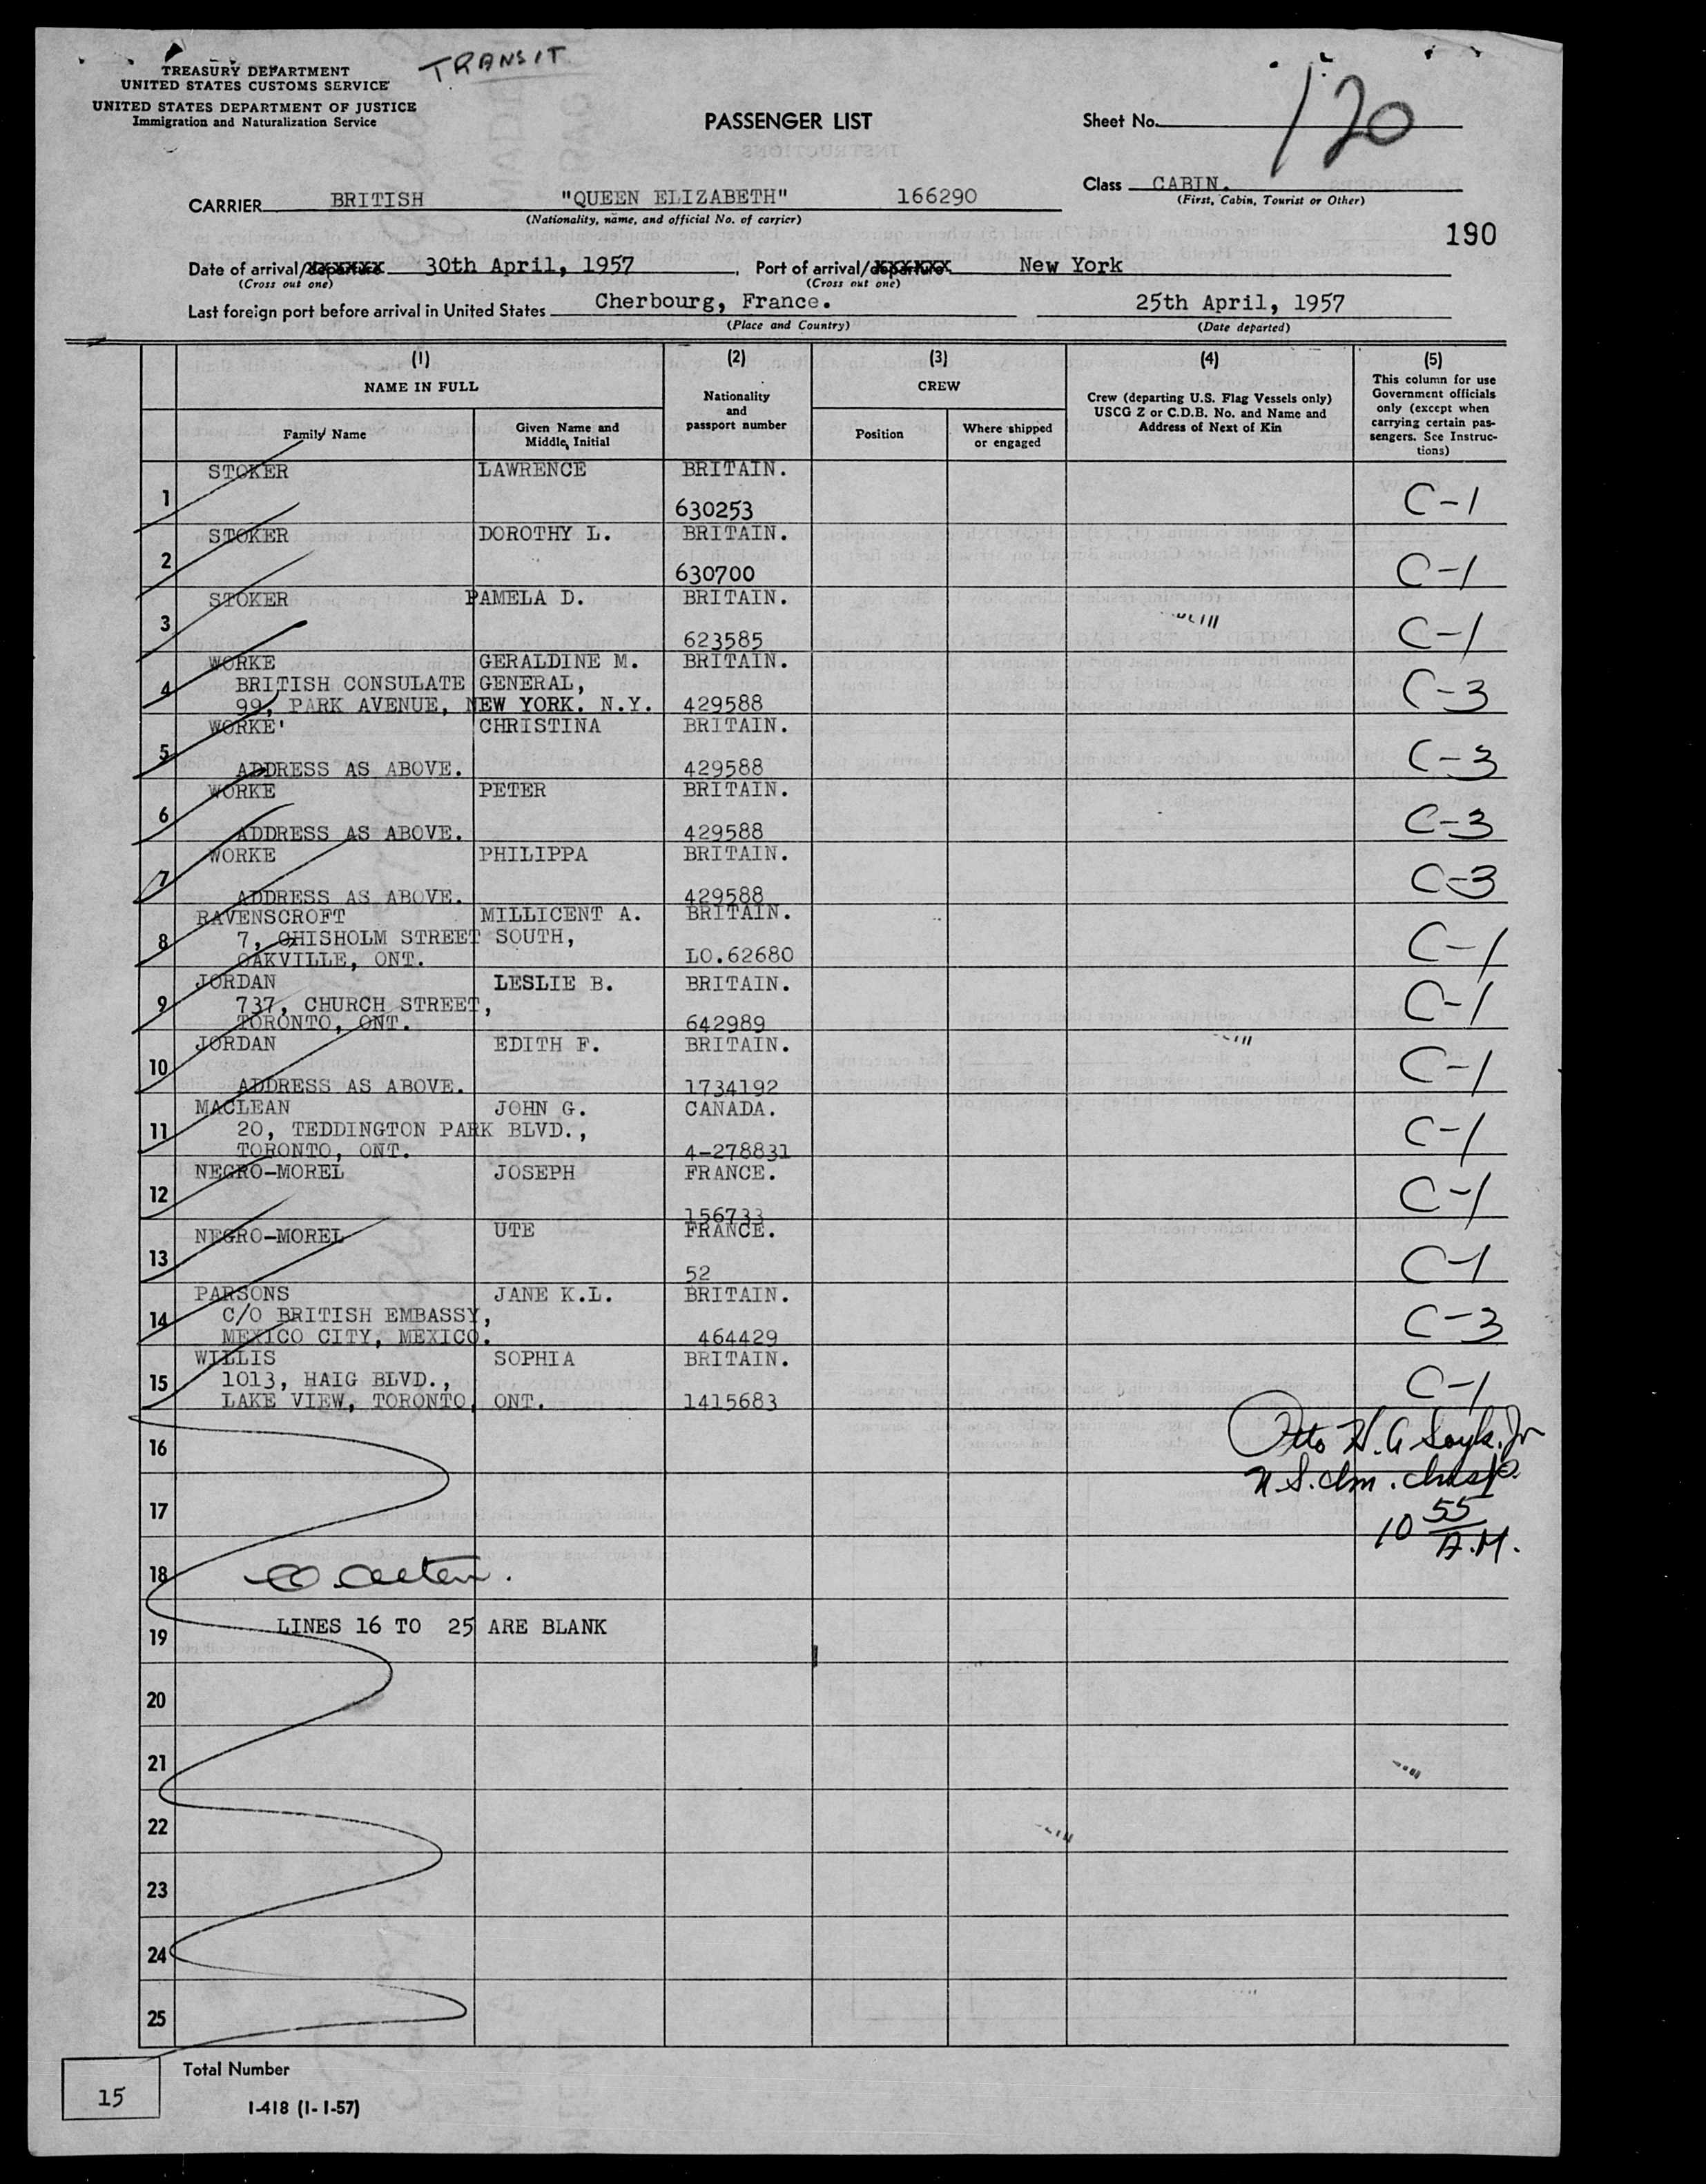 TRANSIT
TREASURY DEPARTMENT
UNITED STATES CUSTOMS SERVICE
UNITED STATES DEPARTMENT OF JUSTICE
Immigration and Naturalization Service
PASSENGER LIST
Sheet No. 120
Class CABIN.
(First, Cabin, Tourist or Other)
CARRIER BRITISH "QUEEN ELIZABETH" 166290
(Nationality, name, and official No. of carrier)
190
Date of arrival/departure 30th April, 1957 Port of arrival/departure New York
(Cross out one) (Cross out one)
Last foreign port before arrival in United States Cherbourg, France. 25th April, 1957
(Place and Country) (Date departed)
(1) (2) (3) (4) (5)
NAME IN FULL
Family Name
Given Name and
Middle, Initial
Nationality
and
passport number
CREW
Position
Where shipped
or engaged
Crew (departing U.S. Flag Vessels only)
USCG Z or C.D.B. No. and Name and
Address of Next of Kin
This column for use
Government officials
only (except when
carrying certain pas-
sengers. See Instruc-
tions)
STOKER LAWRENCE BRITAIN.
1 630253 C-1
STOKER DOROTHY L. BRITAIN.
2 630700 C-1
STOKER PAMELA D. BRITAIN.
3 623585 C-1
WORKE GERALDINE M. BRITAIN.
4 BRITISH CONSULATE GENERAL, C-3
99, PARK AVENUE, NEW YORK. N.Y. 429588
WORKE' CHRISTINA BRITAIN.
5 ADDRESS AS ABOVE. 429588 C-3
WORKE PETER BRITAIN.
6 ADDRESS AS ABOVE. 429588 C-3
WORKE PHILIPPA BRITAIN.
7 ADDRESS AS ABOVE. 429588 C-3
RAVENSCROFT MILLICENT A. BRITAIN.
8 7, CHISHOLM STREET SOUTH, C-1
OAKVILLE, ONT. LO.62680
JORDAN LESLIE B. BRITAIN.
9 737, CHURCH STREET, C-1
TORONTO, ONT. 642989
JORDAN EDITH F. BRITAIN.
10 ADDRESS AS ABOVE. 1734192 C-1
MACLEAN JOHN G. CANADA.
11 20, TEDDINGTON PARK BLVD., C-1
TORONTO, ONT. 4-278831
NEGRO-MOREL JOSEPH FRANCE.
12 156733 C-1
NEGRO-MOREL UTE FRANCE.
13 52 C-1
PARSONS JANE K.L. BRITAIN.
14 C/O BRITISH EMBASSY, C-3
MEXICO CITY, MEXICO. 464429
WILLIS SOPHIA BRITAIN.
15 1013, HAIG BLVD., C-1
LAKE VIEW, TORONTO, ONT. 1415683
16 Otto H. G
17
10 55 A.M.
18
19 LINES 16 TO 25 ARE BLANK
20
21
22
23
24
25
Total Number
15
I-418 (1-1-57)